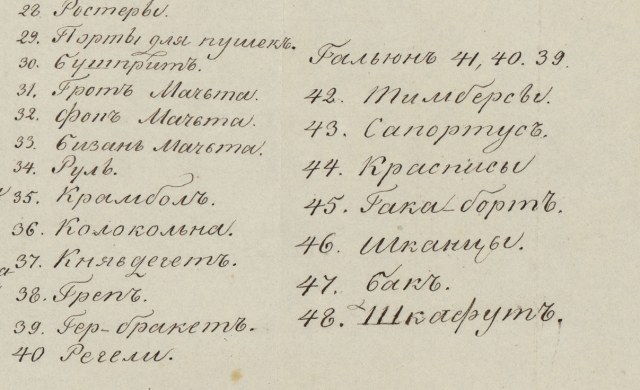 28 Ростервы.
29. Порты для пушекъ.
30. Бушпритъ.
31. Гротъ Мачьта.
32. Фонъ Мачьта.
33. Бизань Мачьта.
34. Руль.
35. Крамболъ.
36. Колокольна.
37. Княвдегетъ.
38. Грепъ.
39. Гер-бракетъ.
40 Регели.
Гальюнъ 41, 40. 39.
42. Тимберсы.
43. Сапортусъ.
44. Красписы
45. Гака-бортъ.
46. Шканцы.
47. Бакъ.
48. Шкафутъ.